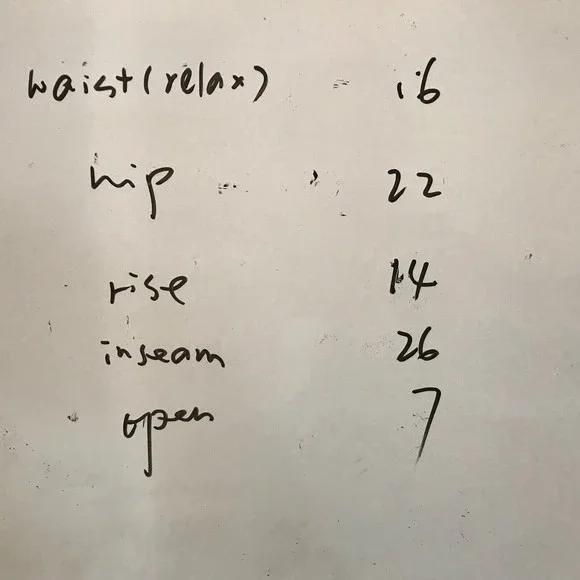 waist(relax) 16
hip 22
rise 14
inseam 26
open 7